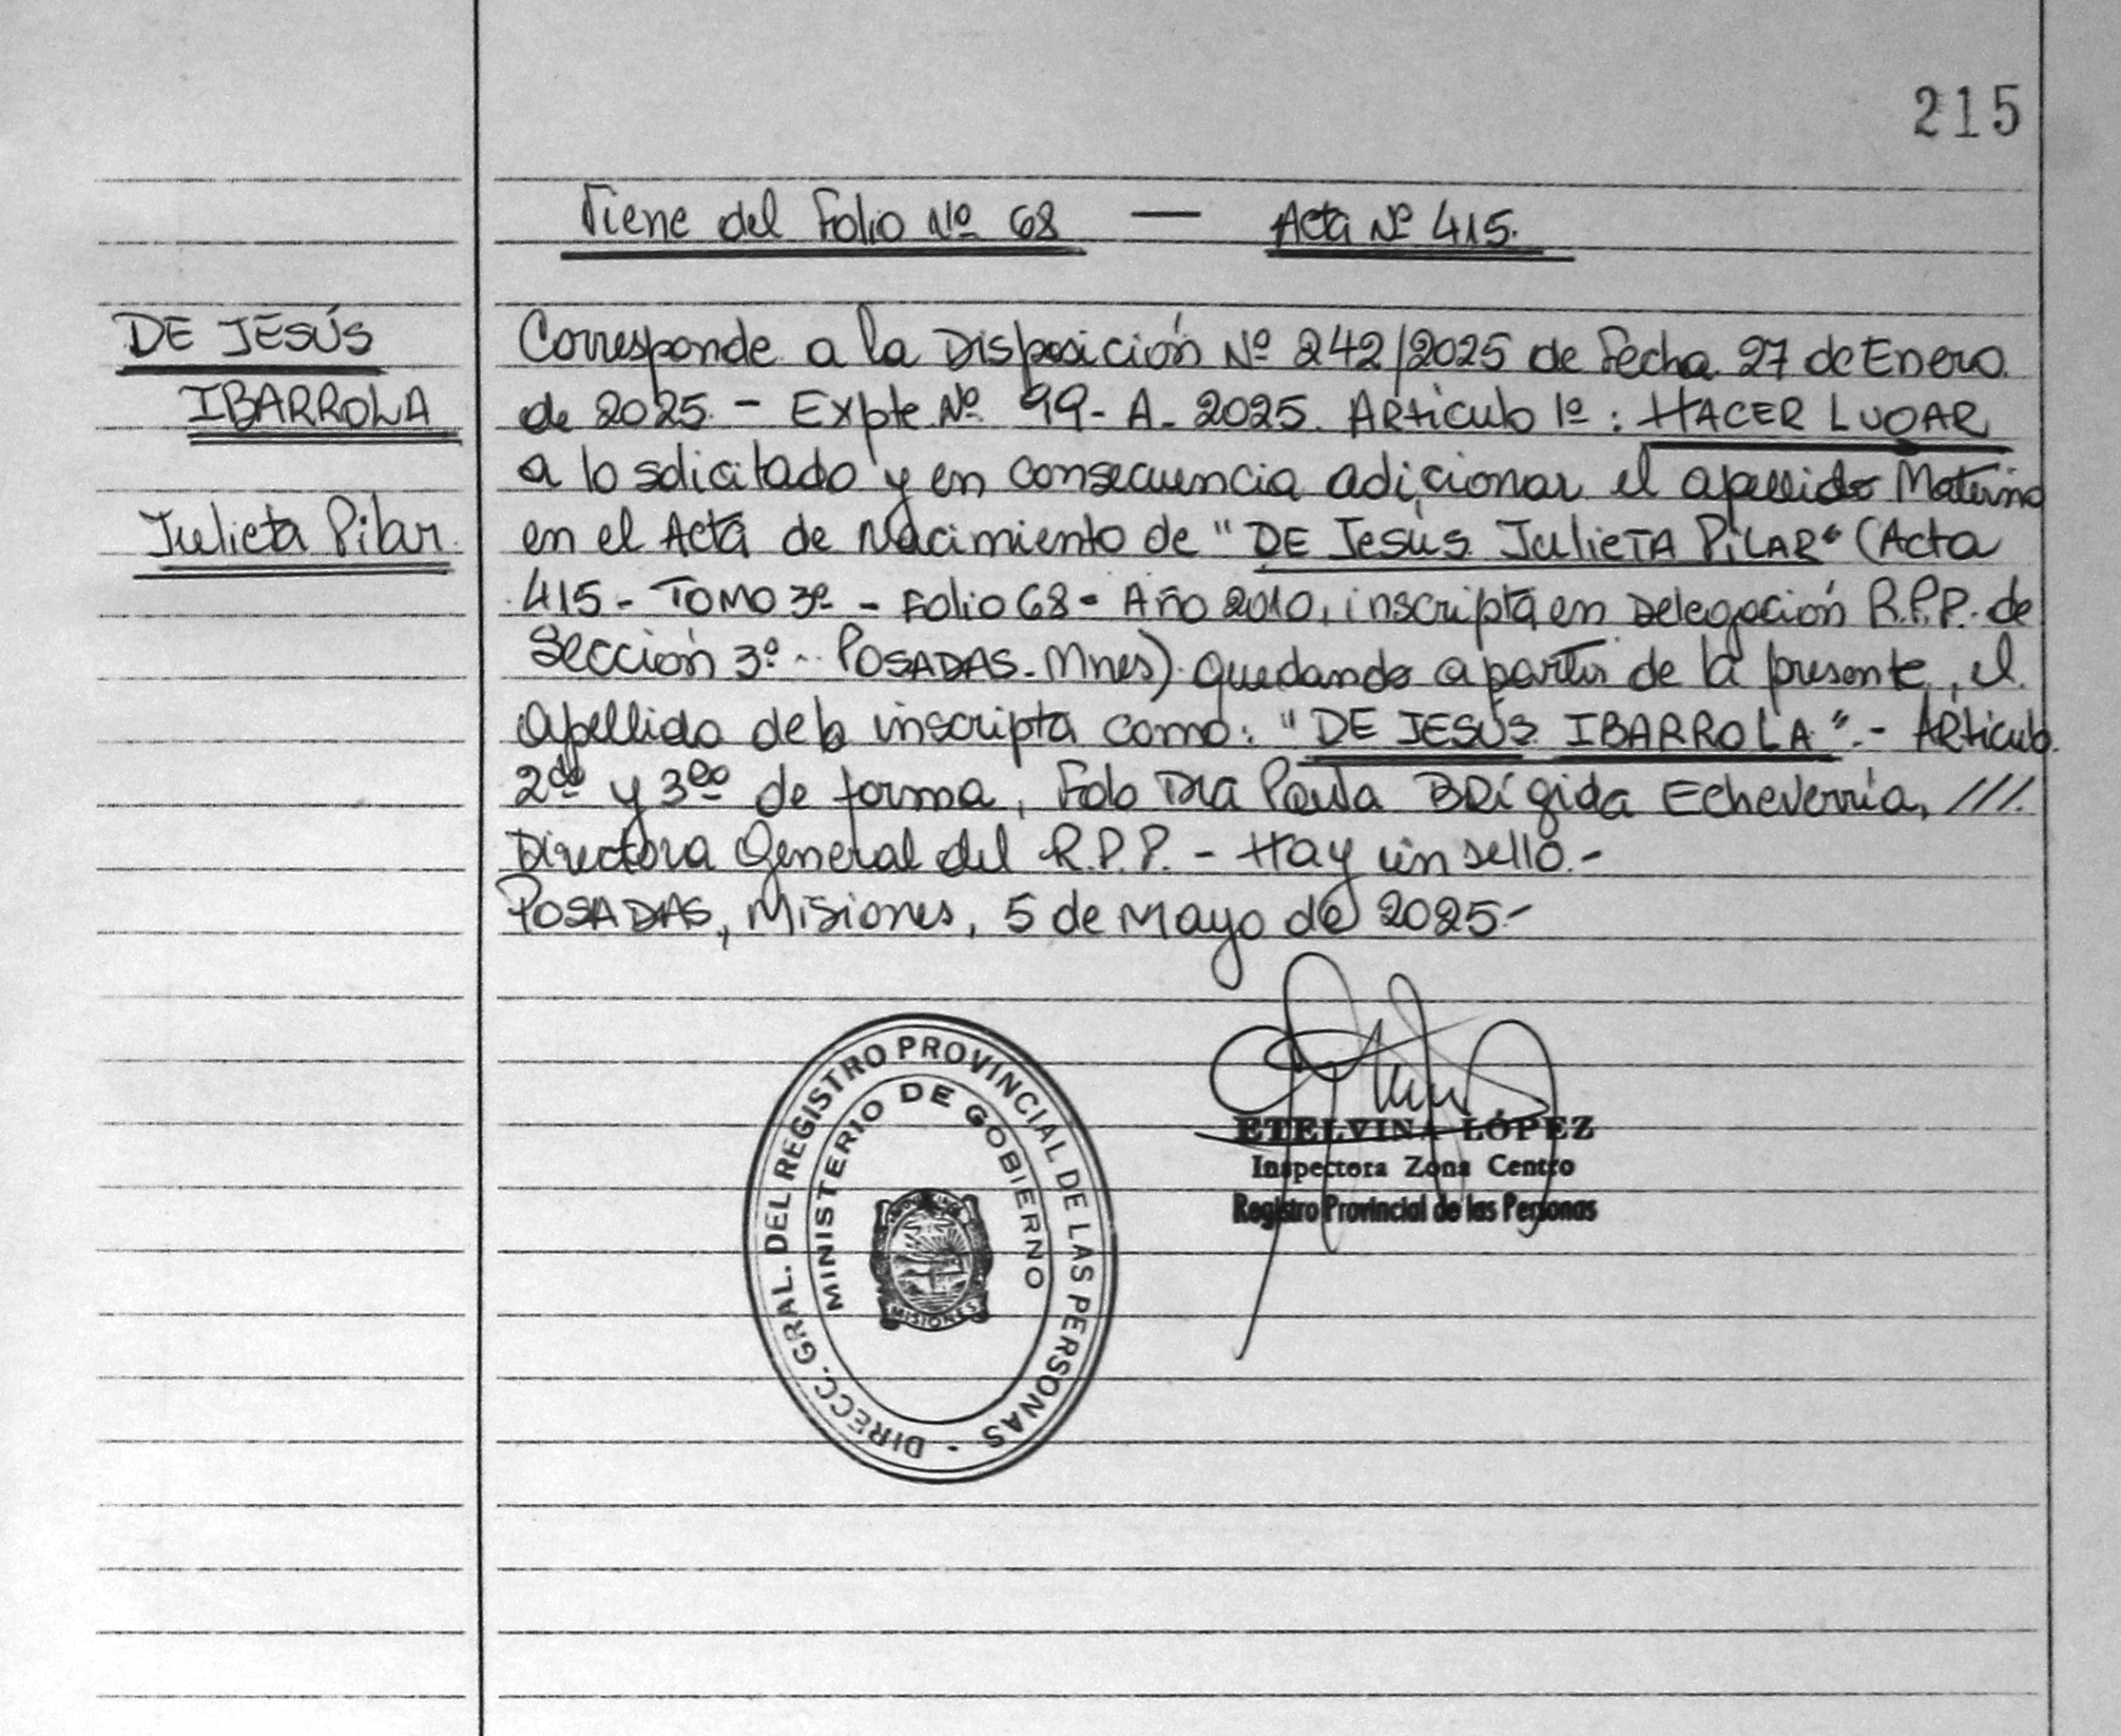 215
Viene del Folio Nº 68 — Acta Nº 415.
DE JESÚS
IBARROLA
Julieta Pilar.
Corresponde a la Disposición Nº 242/2025 de Fecha 27 de Enero
de 2025. - Expte Nº 99- A- 2025. Articulo 1º: HACER LUGAR
a lo solicitado y en consecuencia adicionar el apellido Materno
en el Acta de Nacimiento de "DE Jesús Julieta PiLAR" (Acta
415- TOMO 3º - Folio 68- Año 2010, inscripta en Delegación R.P.P. de
Sección 3º - POSADAS- Mnes) quedando a partir de la presente, el
apellido de la inscripta como: "DE JESÚS IBARROLA".- Articulo
2do y 3ero de forma, Fdo Dra Paula BRígida Echeverría, ///.
Directora General del R.P.P. - Hay un sello.-
POSADAS, Misiones, 5 de Mayo de 2025-
DIRECC. GRAL. DEL REGISTRO PROVINCIAL DE LAS PERSONAS -
MINISTERIO DE GOBIERNO
MISIONES
ETELVINA LÓPEZ
Inspectora Zona Centro
Registro Provincial de las Personas